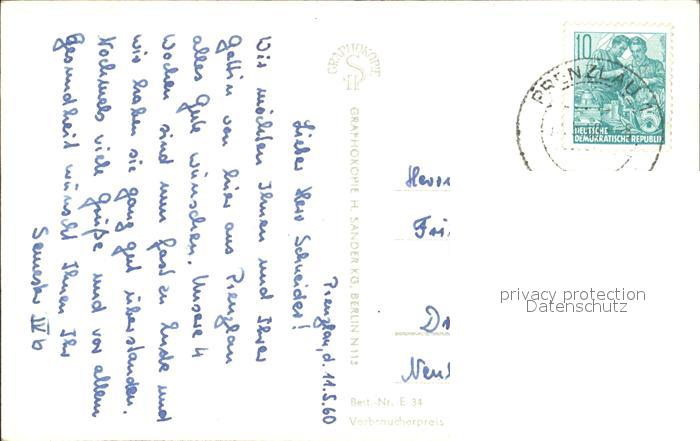 Prenzlau, d. 11.5.60
Lieber Herr Schneider!
Wir möchten Ihnen und Ihrer
Gattin von hier aus Prenzlau
alles Gute wünschen. Unsere 4
Wochen sind nun fast zu Ende und
wir haben sie ganz gut überstanden.
Nochmals viele Grüße und vor allem
Gesundheit wünscht Ihnen Ihr
Semester IV b
GRAPHOKOPIE
GRAPHOKOPIE H. SANDER KG. BERLIN N 113
10
PRENZLAU
DEUTSCHE
DEMOKRATISCHE REPUBLIK
Herr
privacy protection
Datenschutz
Best.-Nr. E 34
Verbraucherpreis